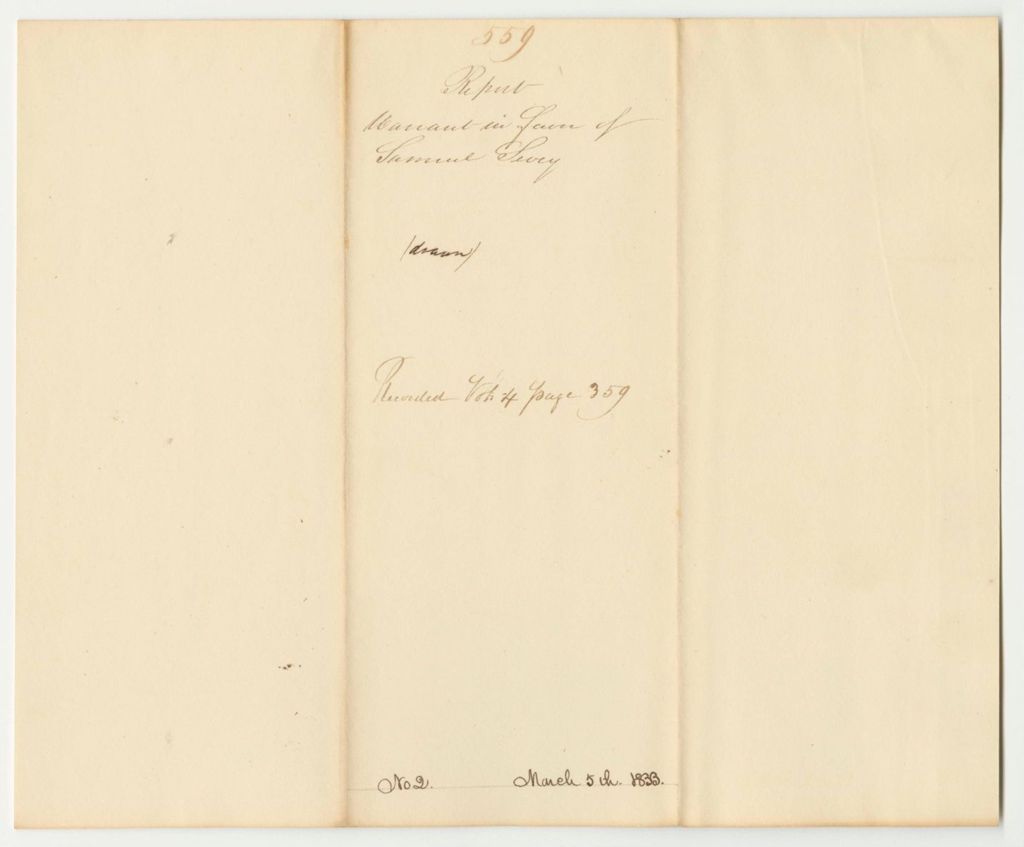 559
Report
Warrant in favor of
Samuel Sevey
(drawn)
Recorded Vol: 4 page 359
No 2. March 5th. 1833.